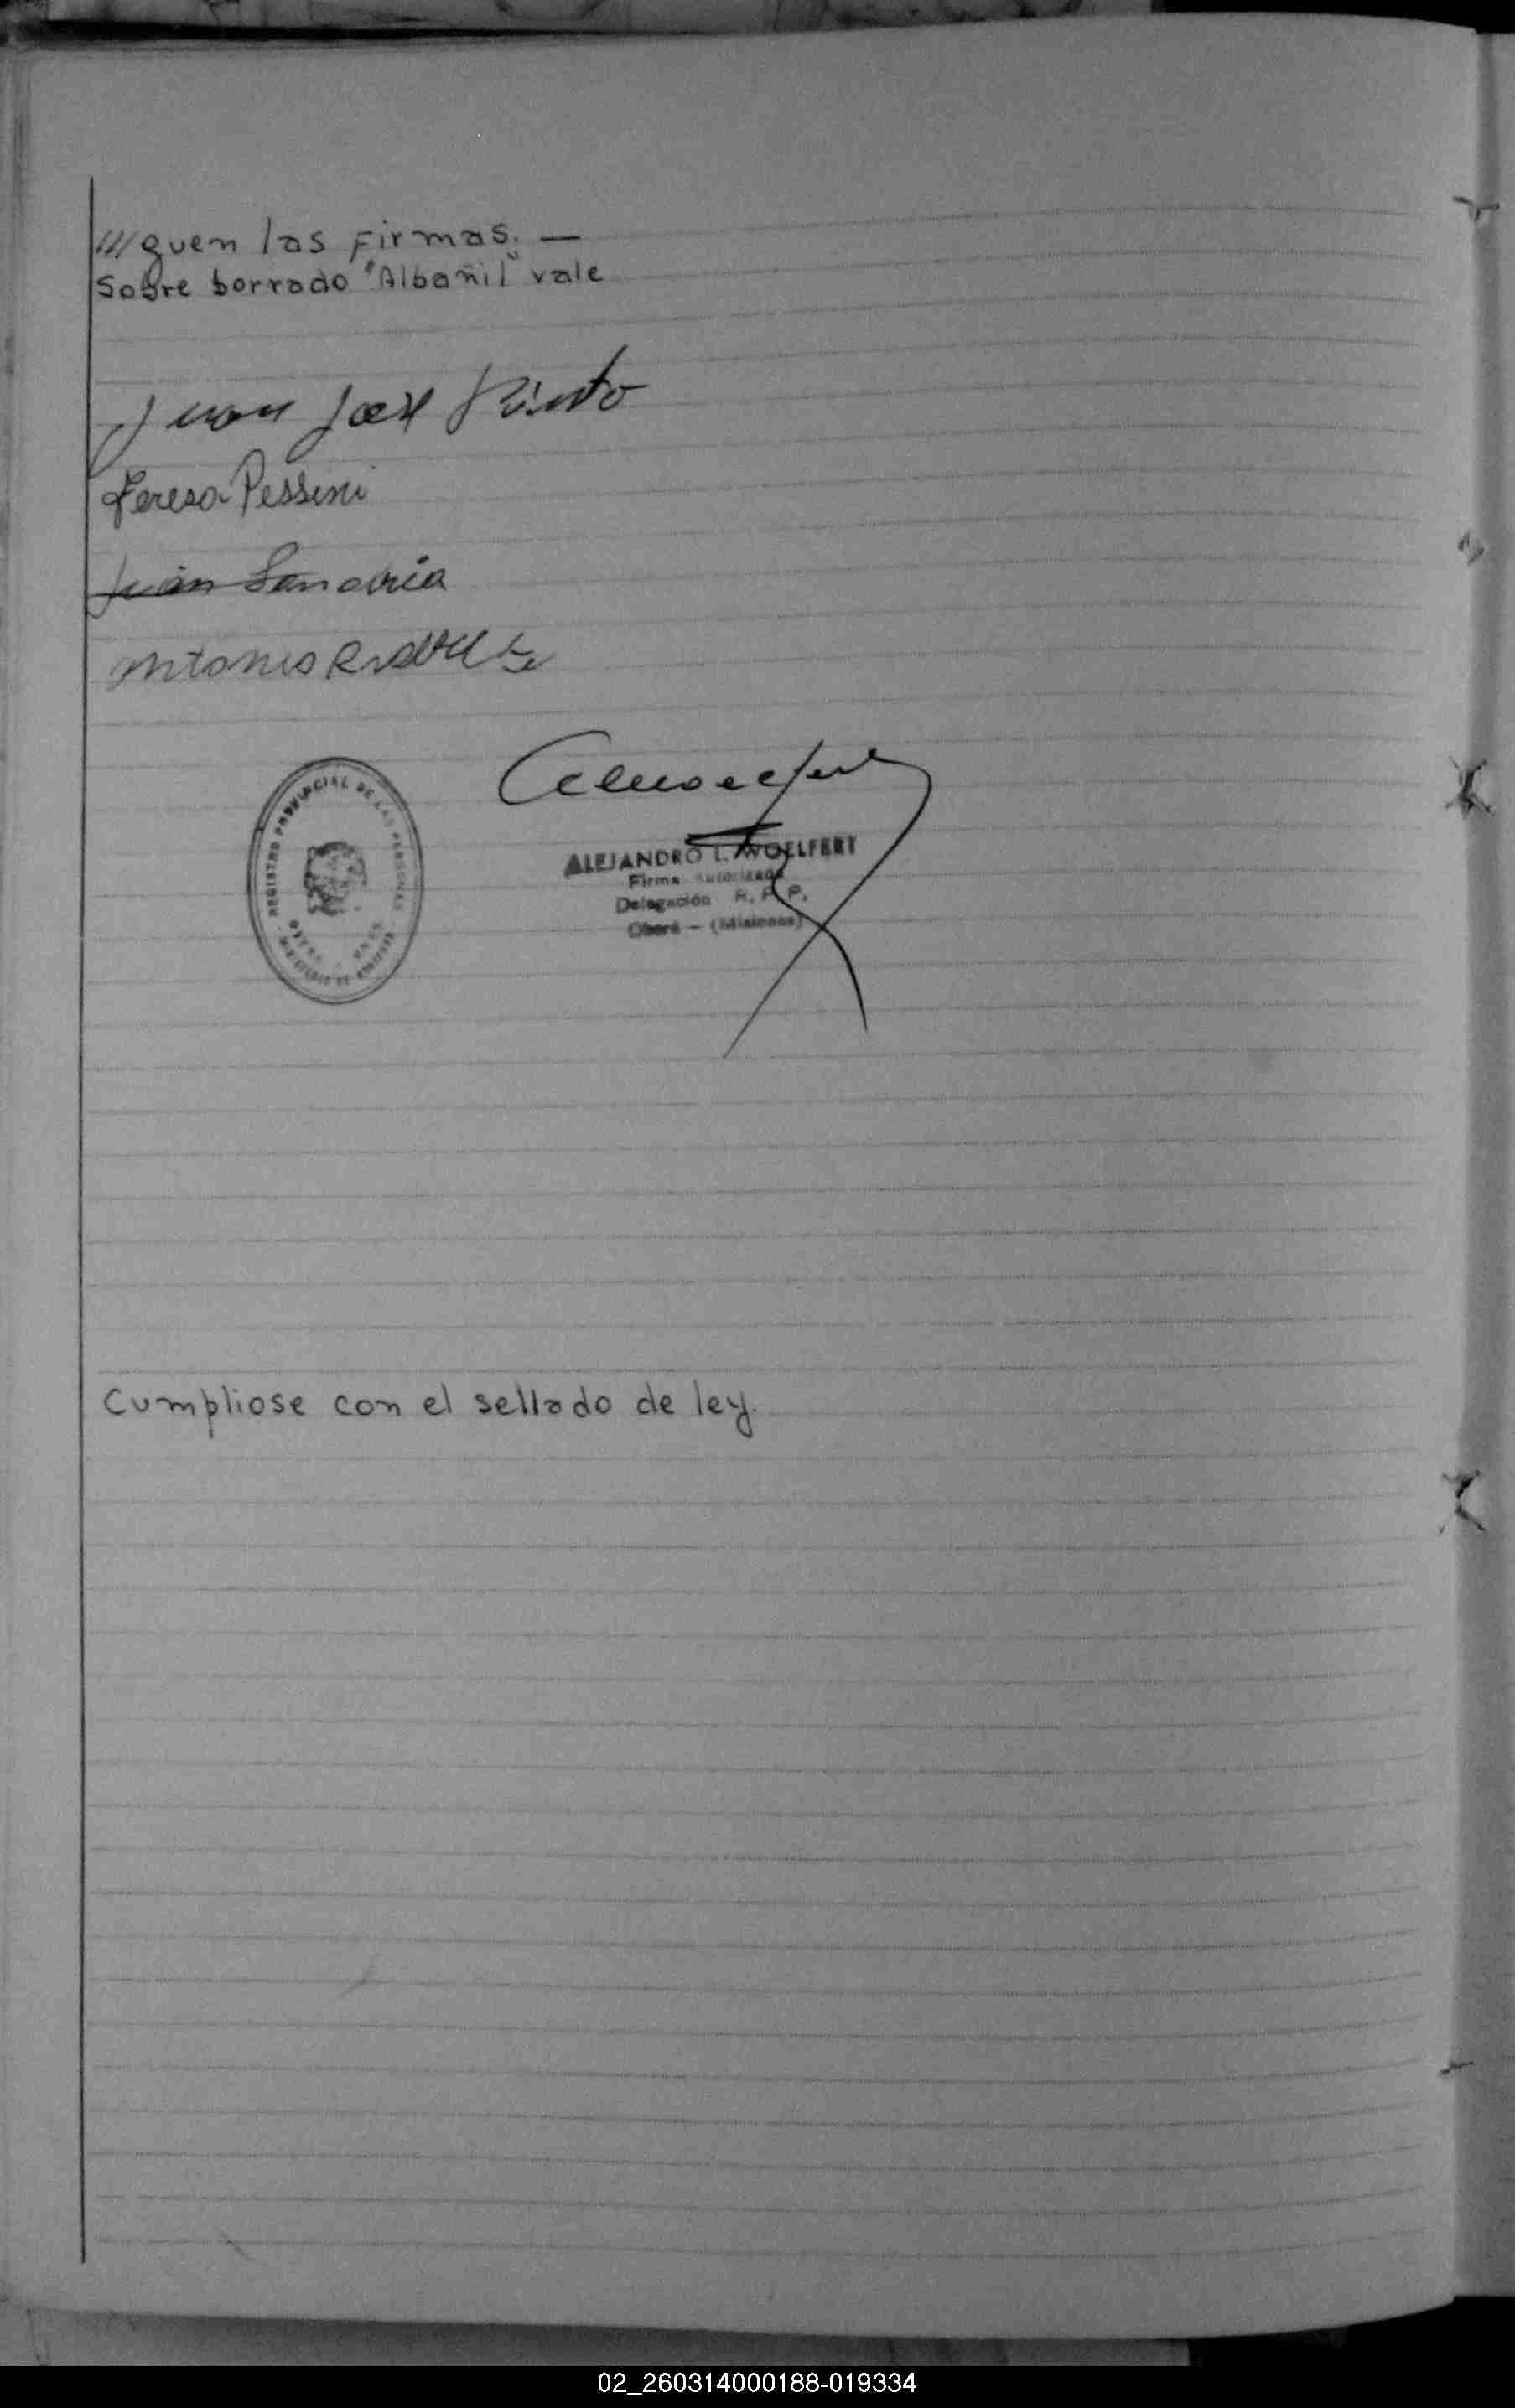 ///guen las Firmas. —
Sobre borrado "Albañil" vale
Juan José Pinto
Teresa Pessini
Juan Sanabria
Antonio
REGISTRO PROVINCIAL DE LAS PERSONAS
MINISTERIO DE GOBIERNO
ALEJANDRO L. WOELFERT
Firma Autorizada
Delegación R. P. P.
Oberá - (Misiones)
Cumpliose con el sellado de ley.
02_260314000188-019334